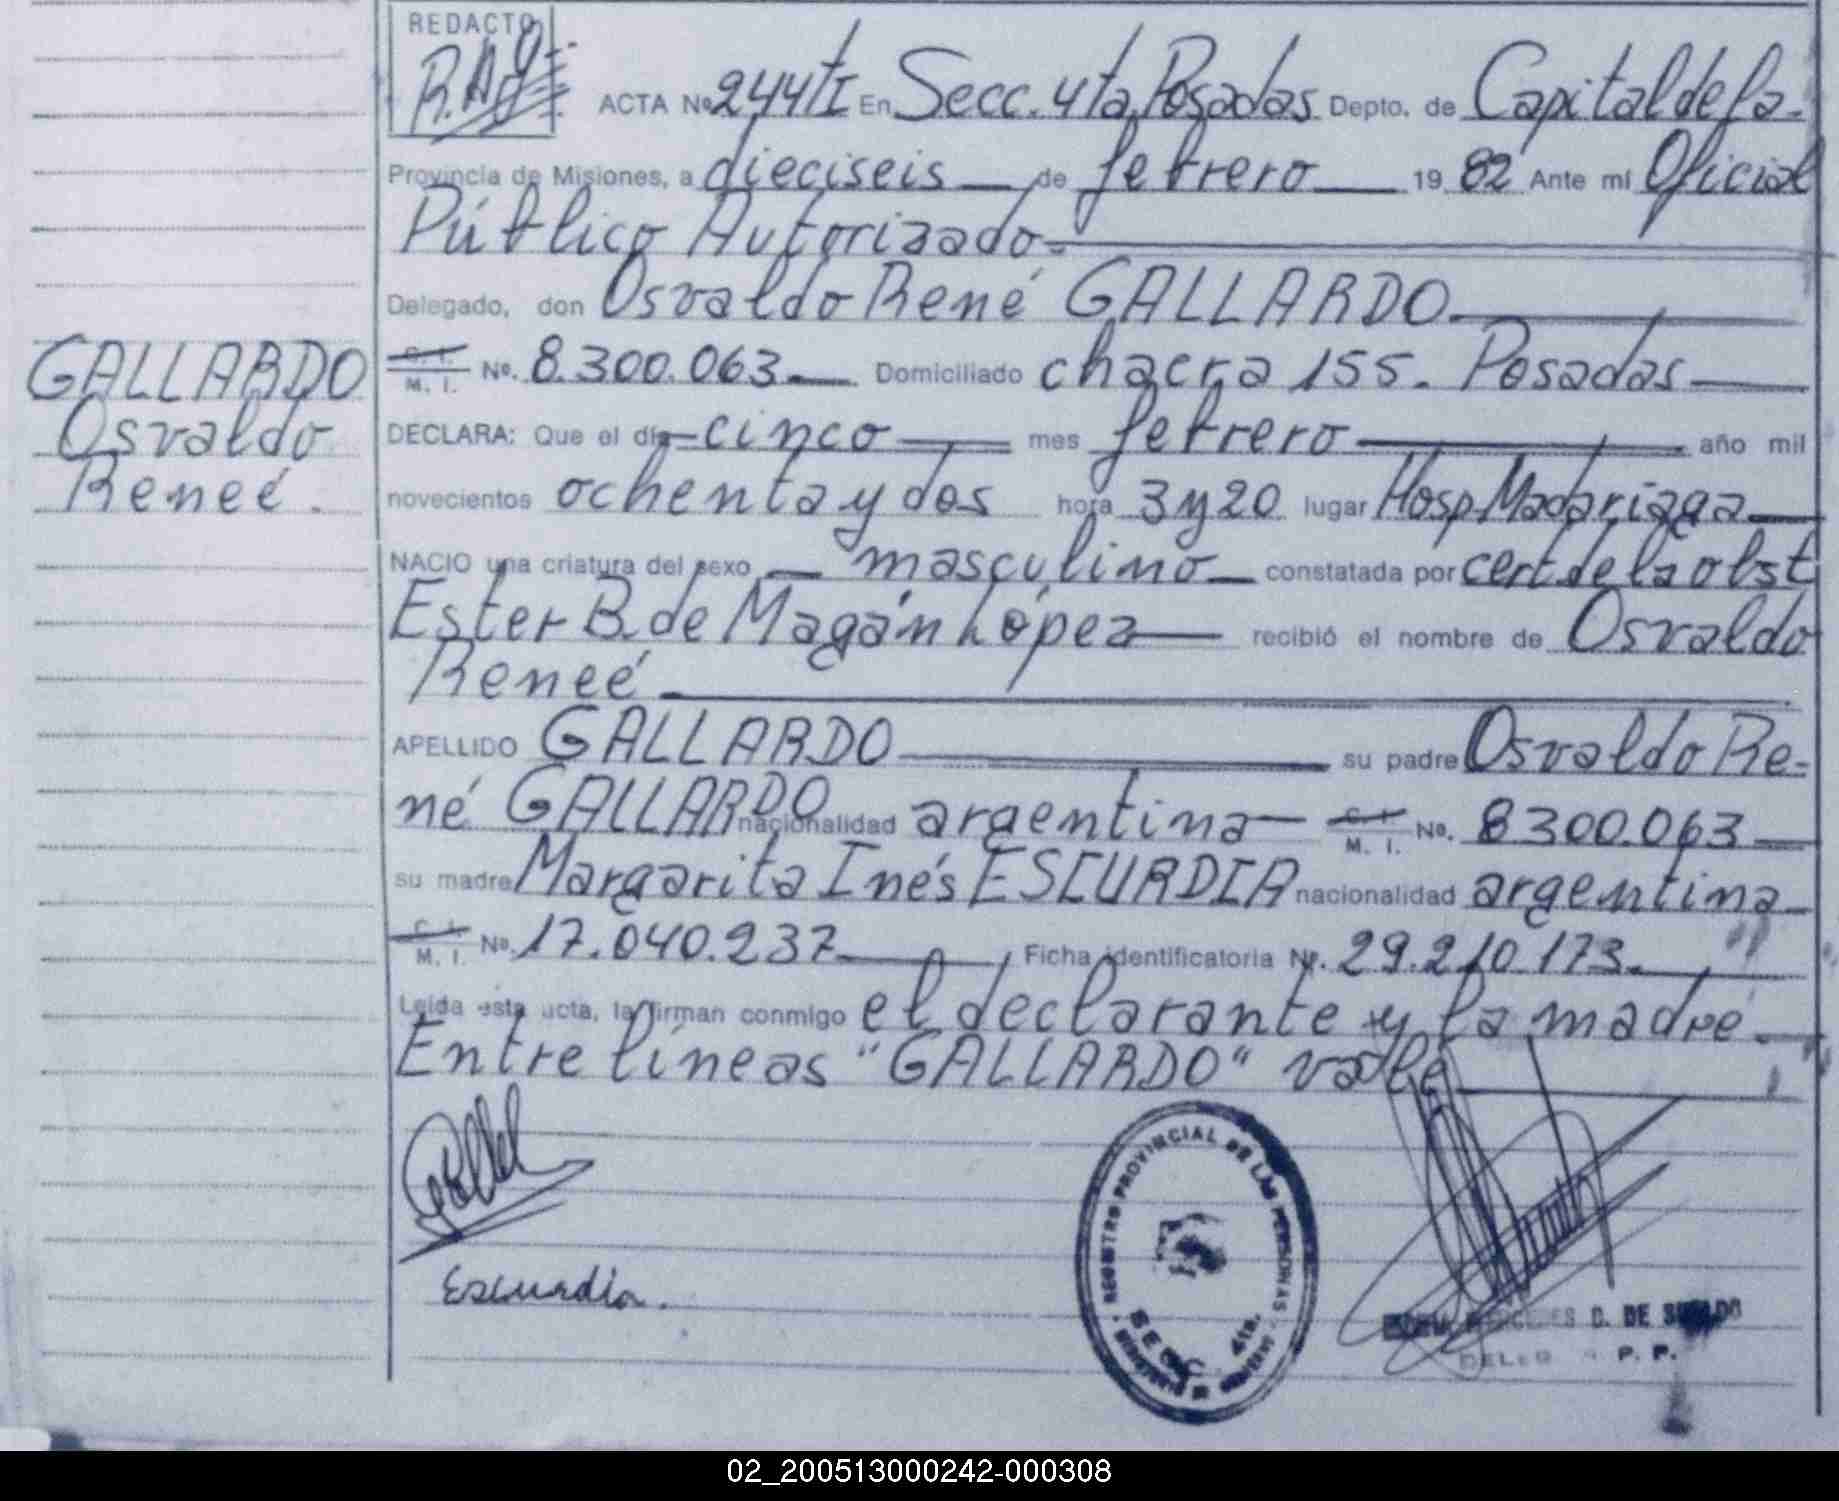 REDACTO
ACTA Nº 244 tI En Secc. 4ta Posadas Depto. de Capital de la
Provincia de Misiones, a dieciseis de febrero 1982 Ante mi Oficial
Público Autorizado
Delegado, don Osvaldo René GALLARDO
C. I. M. I. Nº. 8.300.063 Domiciliado chacra 155. Posadas
GALLARDO
Osvaldo
Reneé.
DECLARA: Que el día cinco mes febrero año mil
novecientos ochenta y dos hora 3 y 20 lugar Hosp Madariaga
NACIO una criatura del sexo masculino constatada por cert. de la obst
Ester B. de Magán López recibió el nombre de Osvaldo
Reneé
APELLIDO GALLARDO su padre Osvaldo Re-
né GALLARDO nacionalidad argentina C. I. M. I. Nº. 8300.063
su madre Margarita Inés ESCURDIA nacionalidad argentina
C. I. M. I. Nº. 17.040.237 Ficha identificatoria Nº. 29.210.173.
Leída esta acta, la firman conmigo el declarante y la madre
Entre líneas "GALLARDO" vale
Escurdia.
REGISTRO PROVINCIAL DE LAS PERSONAS
SECC. 4ta.
D. DE
P. P.
02_200513000242-000308